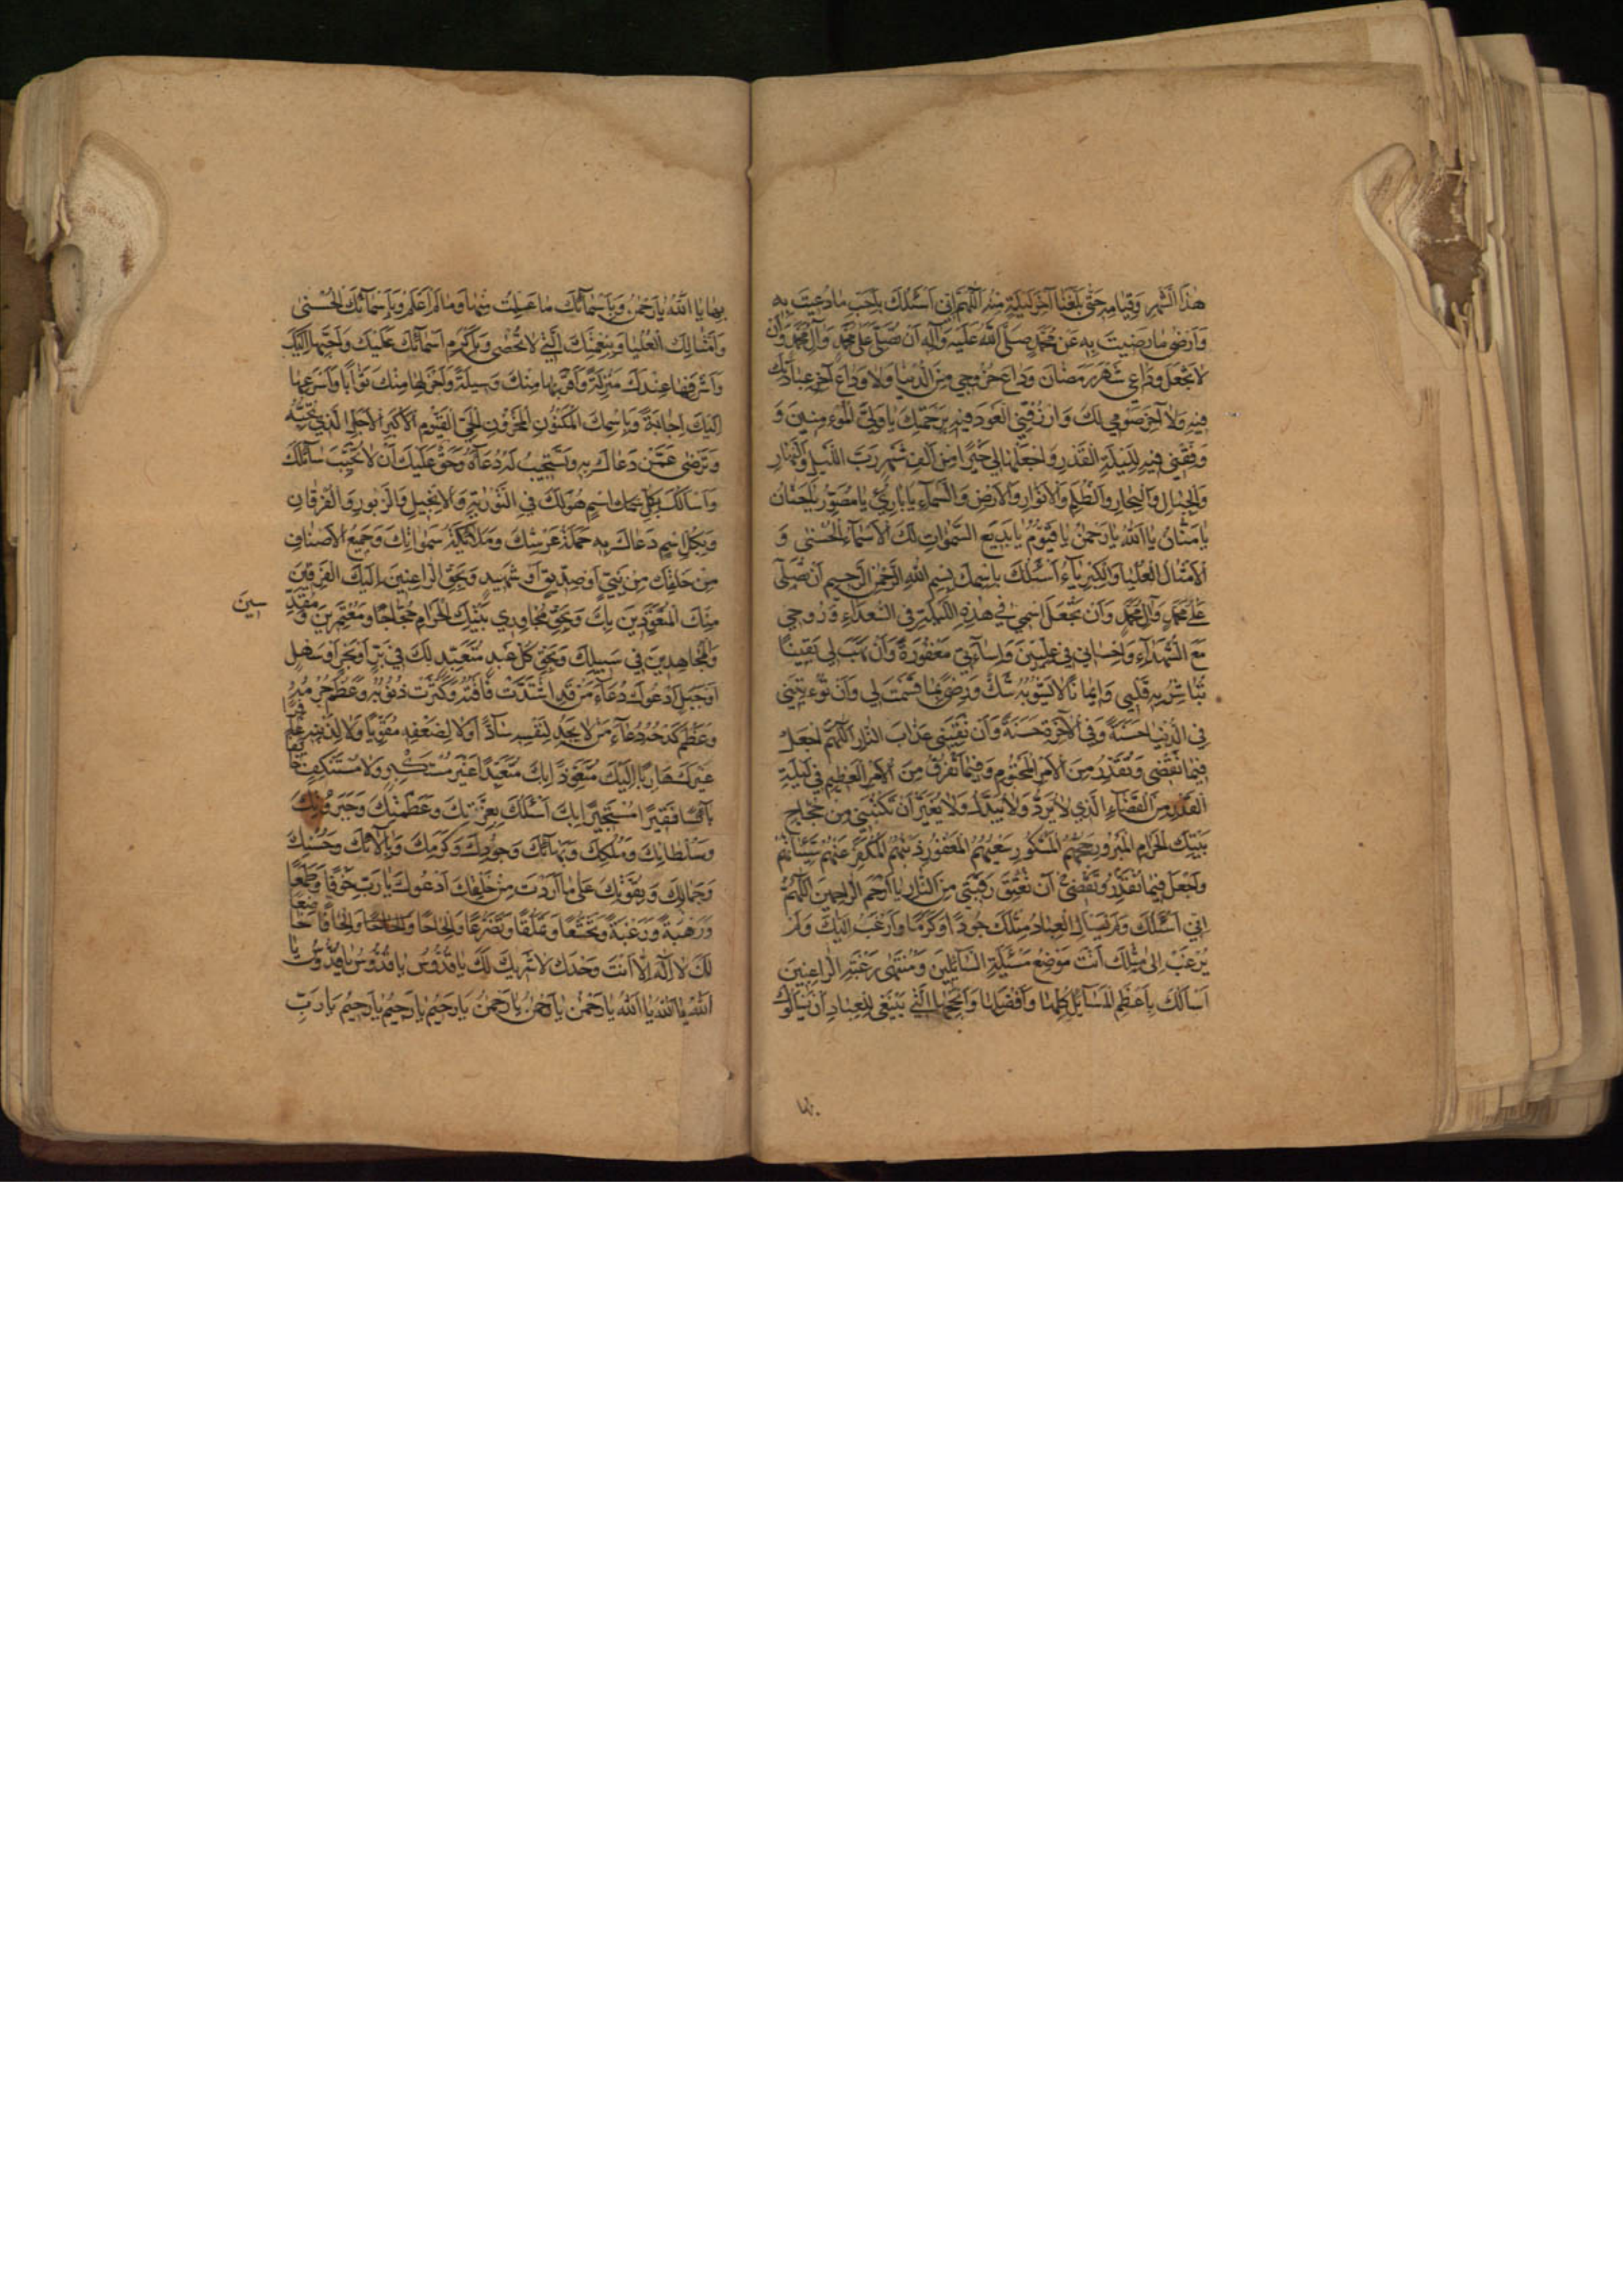 هٰذَا الشَّهْرِ وَقِيَامِهِ حَتّٰى بَلَّغَنَا آخِرَ لَيْلَةٍ مِنْهُ اَللّٰهُمَّ اِنّي اَسْئَلُكَ بِاَحَبِّ مَا دُعِيتَ بِهِ
وَاَرْضٰى مَا رَضِيتَ بِهِ عَنْ مُحَمَّدٍ صَلَّى اللّٰهُ عَلَيْهِ وَآلِهِ اَنْ تُصَلِّيَ عَلٰى مُحَمَّدٍ وَآلِ مُحَمَّدٍ وَاَنْ
لَا تَجْعَلَ وَدَاعي شَهْرَ رَمَضَانَ وَدَاعَ خُرُوجي مِنَ الدُّنْيَا وَلَا وَدَاعَ آخِرِ عِبَادَتِكَ
فِيهِ وَلَا آخِرَ صَوْمي لَكَ وَارْزُقْنِي الْعَوْدَ فِيهِ بِرَحْمَتِكَ يَا وَلِيَّ الْمُؤْمِنِينَ وَ
وَفِّقْني فِيهِ لِلَيْلَةِ الْقَدْرِ وَاجْعَلْهَا لي خَيْرًا مِنْ اَلْفِ شَهْرٍ رَبَّ اللَّيْلِ وَالنَّهَارِ
وَالْجِبَالِ وَالْبِحَارِ وَالظُّلَمِ وَالْاَنْوَارِ وَالْاَرْضِ وَالسَّمَاءِ يَا بَارِئُ يَا مُصَوِّرُ يَا حَنَّانُ
يَا مَنَّانُ يَا اَللّٰهُ يَا رَحْمٰنُ يَا قَيُّومُ يَا بَدِيعَ السَّمٰوَاتِ لَكَ الْاَسْمَاءُ الْحُسْنٰى وَ
الْاَمْثَالُ الْعُلْيَا وَالْكِبْرِيَاءُ اَسْئَلُكَ بِاسْمِكَ بِسْمِ اللّٰهِ الرَّحْمٰنِ الرَّحِيمِ اَنْ تُصَلِّيَ
عَلٰى مُحَمَّدٍ وَآلِ مُحَمَّدٍ وَاَنْ تَجْعَلَ اسْمي في هٰذِهِ اللَّيْلَةِ فِي السُّعَدَاءِ وَرُوحي
مَعَ الشُّهَدَاءِ وَاِحْسَاني في عِلِّيِّينَ وَاِسَاءَتي مَغْفُورَةً وَاَنْ تَهَبَ لي يَقِينًا
تُبَاشِرُ بِهِ قَلْبي وَاِيمَانًا لَا يَشُوبُهُ شَكٌّ وَرِضًى بِمَا قَسَمْتَ لي وَاَنْ تُؤْتِيَني
فِي الدُّنْيَا حَسَنَةً وَفِي الْآخِرَةِ حَسَنَةً وَاَنْ تَقِيَني عَذَابَ النَّارِ اَللّٰهُمَّ اجْعَلْ
فِيمَا تَقْضي وَتُقَدِّرُ مِنَ الْاَمْرِ الْمَحْتُومِ وَفِيمَا تَفْرُقُ مِنَ الْاَمْرِ الْعَظِيمِ في لَيْلَةِ
الْقَدْرِ مِنَ الْقَضَاءِ الَّذي لَا يُرَدُّ وَلَا يُبَدَّلُ وَلَا يُغَيَّرُ اَنْ تَكْتُبَني مِنْ حُجَّاجِ
بَيْتِكَ الْحَرَامِ الْمَبْرُورِ حَجُّهُمُ الْمَشْكُورِ سَعْيُهُمُ الْمَغْفُورِ ذَنْبُهُمُ الْمُكَفَّرِ عَنْهُمْ سَيِّئَاتُهُمْ
وَاجْعَلْ فِيمَا تُقَدِّرُ وَتَقْضي اَنْ تُعْتِقَ رَقَبَتي مِنَ النَّارِ يَا اَرْحَمَ الرَّاحِمِينَ اَللّٰهُمَّ
اِنّي اَسْئَلُكَ وَلَمْ يَسْأَلِ الْعِبَادُ مِثْلَكَ جُودًا وَكَرَمًا وَاَرْغَبُ اِلَيْكَ وَلَمْ
يُرْغَبْ اِلٰى مِثْلِكَ اَنْتَ مَوْضِعُ مَسْئَلَةِ السَّائِلِينَ وَمُنْتَهٰى رَغْبَةِ الرَّاغِبِينَ
اَسْاَلُكَ بِاَعْظَمِ الْمَسَائِلِ كُلِّهَا وَاَفْضَلِهَا وَاَنْجَحِهَا الَّتي يَنْبَغي لِلْعِبَادِ اَنْ يَسْأَلُوكَ
بها
بِهَا يَا اَللّٰهُ يَا رَحْمٰنُ وَبِاَسْمَائِكَ مَا عَلِمْتُ مِنْهَا وَمَا لَمْ اَعْلَمْ وَبِاَسْمَائِكَ الْحُسْنٰى
وَاَمْثَالِكَ الْعُلْيَا وَبِنِعْمَتِكَ الَّتي لَا تُحْصٰى وَبِاَكْرَمِ اَسْمَائِكَ عَلَيْكَ وَاَحَبِّهَا اِلَيْكَ
وَاَشْرَفِهَا عِنْدَكَ مَنْزِلَةً وَاَقْرَبِهَا مِنْكَ وَسِيلَةً وَاَجْزَلِهَا مِنْكَ ثَوَابًا وَاَسْرَعِهَا
اِلَيْكَ اِجَابَةً وَبِاسْمِكَ الْمَكْنُونِ الْمَخْزُونِ الْحَيِّ الْقَيُّومِ الْاَكْبَرِ الْاَجَلِّ الَّذي تُحِبُّهُ
وَتَرْضٰى عَمَّنْ دَعَاكَ بِهِ وَتَسْتَجِيبُ لَهُ دُعَاءَهُ وَحَقٌّ عَلَيْكَ اَنْ لَا تُخَيِّبَ سَائِلَكَ
وَاَسْاَلُكَ بِكُلِّ اسْمٍ هُوَ لَكَ فِي التَّوْرٰيةِ وَالْاِنْجِيلِ وَالزَّبُورِ وَالْفُرْقَانِ
وَبِكُلِّ اسْمٍ دَعَاكَ بِهِ حَمَلَةُ عَرْشِكَ وَمَلَائِكَةُ سَمٰوَاتِكَ وَجَمِيعُ الْاَصْنَافِ
مِنْ خَلْقِكَ مِنْ نَبِيٍّ اَوْ صِدِّيقٍ اَوْ شَهِيدٍ وَبِحَقِّ الرَّاغِبِينَ اِلَيْكَ الْفَرِقِينَ
مِنْكَ الْمُتَعَوِّذِينَ بِكَ وَبِحَقِّ مُجَاوِري بَيْتِكَ الْحَرَامِ حُجَّاجًا وَمُعْتَمِرِينَ وَمُقَدِّسِينَ
وَالْمُجَاهِدِينَ في سَبِيلِكَ وَبِحَقِّ كُلِّ عَبْدٍ مُتَعَبِّدٍ لَكَ في بَرٍّ اَوْ بَحْرٍ اَوْ سَهْلٍ
اَوْ جَبَلٍ اَدْعُوكَ دُعَاءَ مَنْ قَدِ اشْتَدَّتْ فَاقَتُهُ وَكَثُرَتْ ذُنُوبُهُ وَعَظُمَ جُرْمُهُ
وَعَظُمَ كَدْحُهُ دُعَاءَ مَنْ لَا يَجِدُ لِنَفْسِهِ سَادًّا وَلَا لِضَعْفِهِ مُقَوِّيًا وَلَا لِذَنْبِهِ غَافِرًا
غَيْرَكَ هَارِبًا اِلَيْكَ مُتَعَوِّذًا بِكَ مُتَعَبِّدًا غَيْرَ مُسْتَكْبِرٍ وَلَا مُسْتَنْكِفٍ خَائِفًا
بَائِسًا فَقِيرًا مُسْتَجِيرًا بِكَ اَسْئَلُكَ بِعِزَّتِكَ وَعَظَمَتِكَ وَجَبَرُوتِكَ
وَسُلْطَانِكَ وَمُلْكِكَ وَبَهَائِكَ وَجُودِكَ وَكَرَمِكَ وَبِآلَائِكَ وَحُسْنِكَ
وَجَمَالِكَ وَبِقُوَّتِكَ عَلٰى مَا اَرَدْتَ مِنْ خَلْقِكَ اَدْعُوكَ يَا رَبِّ خَوْفًا وَطَمَعًا
وَرَهْبَةً وَرَغْبَةً وَتَخَشُّعًا وَتَمَلُّقًا وَتَضَرُّعًا وَاِلْحَاحًا وَاِلْحَافًا خَاضِعًا
لَكَ لَا اِلٰهَ اِلَّا اَنْتَ وَحْدَكَ لَا شَرِيكَ لَكَ يَا قُدُّوسُ يَا قُدُّوسُ يَا قُدُّوسُ يَا
اَللّٰهُ يَا اَللّٰهُ يَا اَللّٰهُ يَا رَحْمٰنُ يَا رَحْمٰنُ يَا رَحْمٰنُ يَا رَحِيمُ يَا رَحِيمُ يَا رَحِيمُ يَا رَبِّ